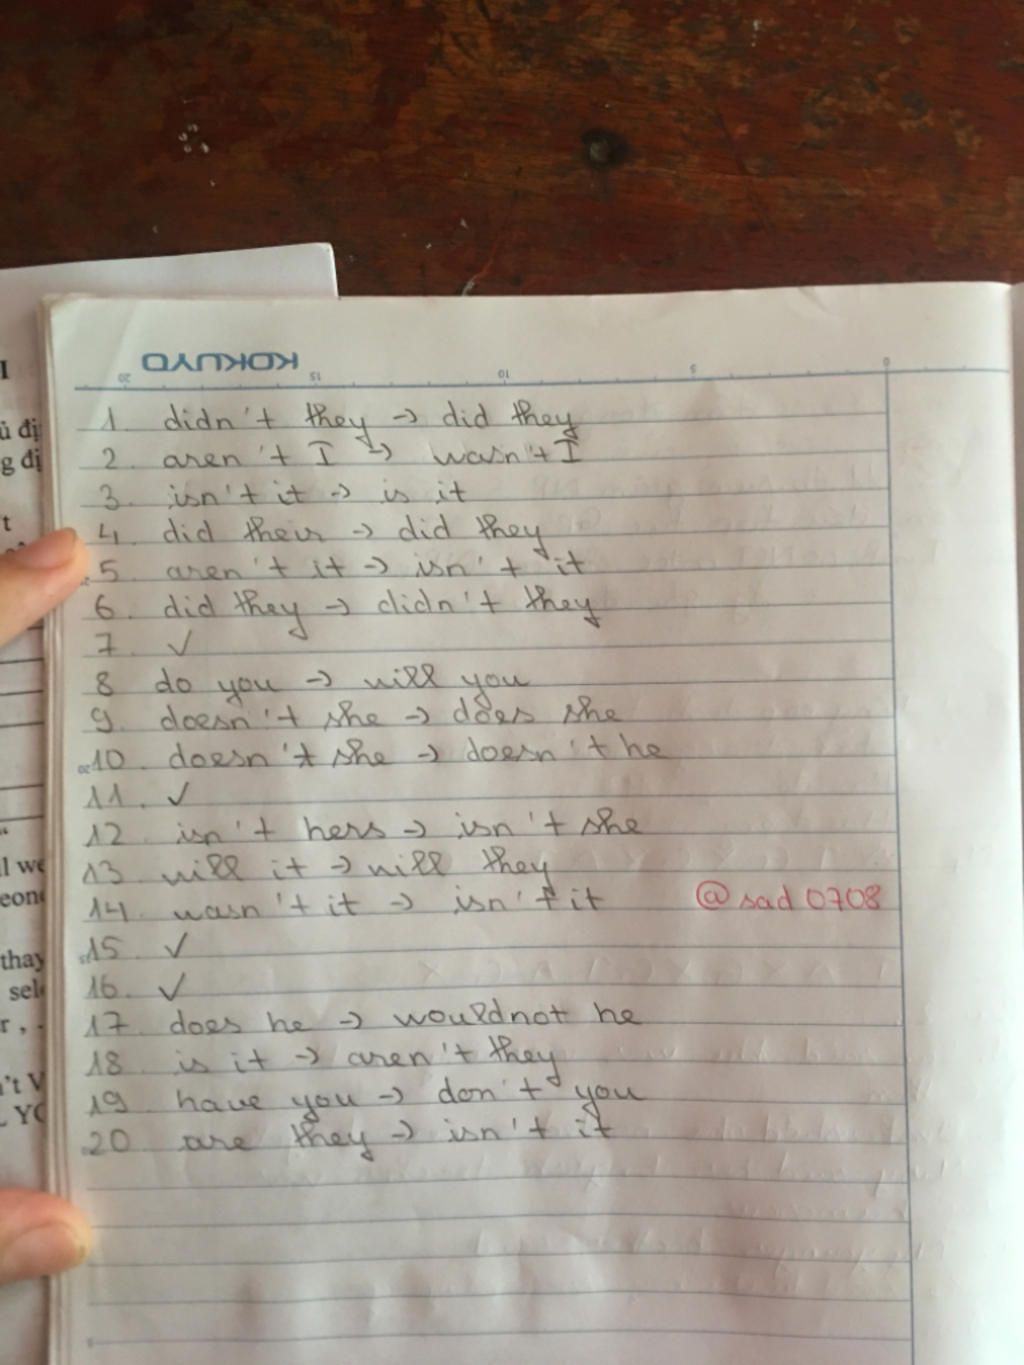 KOKUYO
20 15 10 5 0
1. didn't they → did they
2. aren't I → wasn't I
3. isn't it → is it
4. did their → did they
5. aren't it → isn't it
6. did they → didn't they
7. ✓
8 do you → will you
9. doesn't she → does she
10. doesn't she → doesn't he
11. ✓
12. isn't hers → isn't she
13. will it → will they
14. wasn't it → isn't it @sad 0708
15. ✓
16. ✓
17. does he → wouldnot he
18. is it → aren't they
19. have you → don't you
20 are they → isn't it